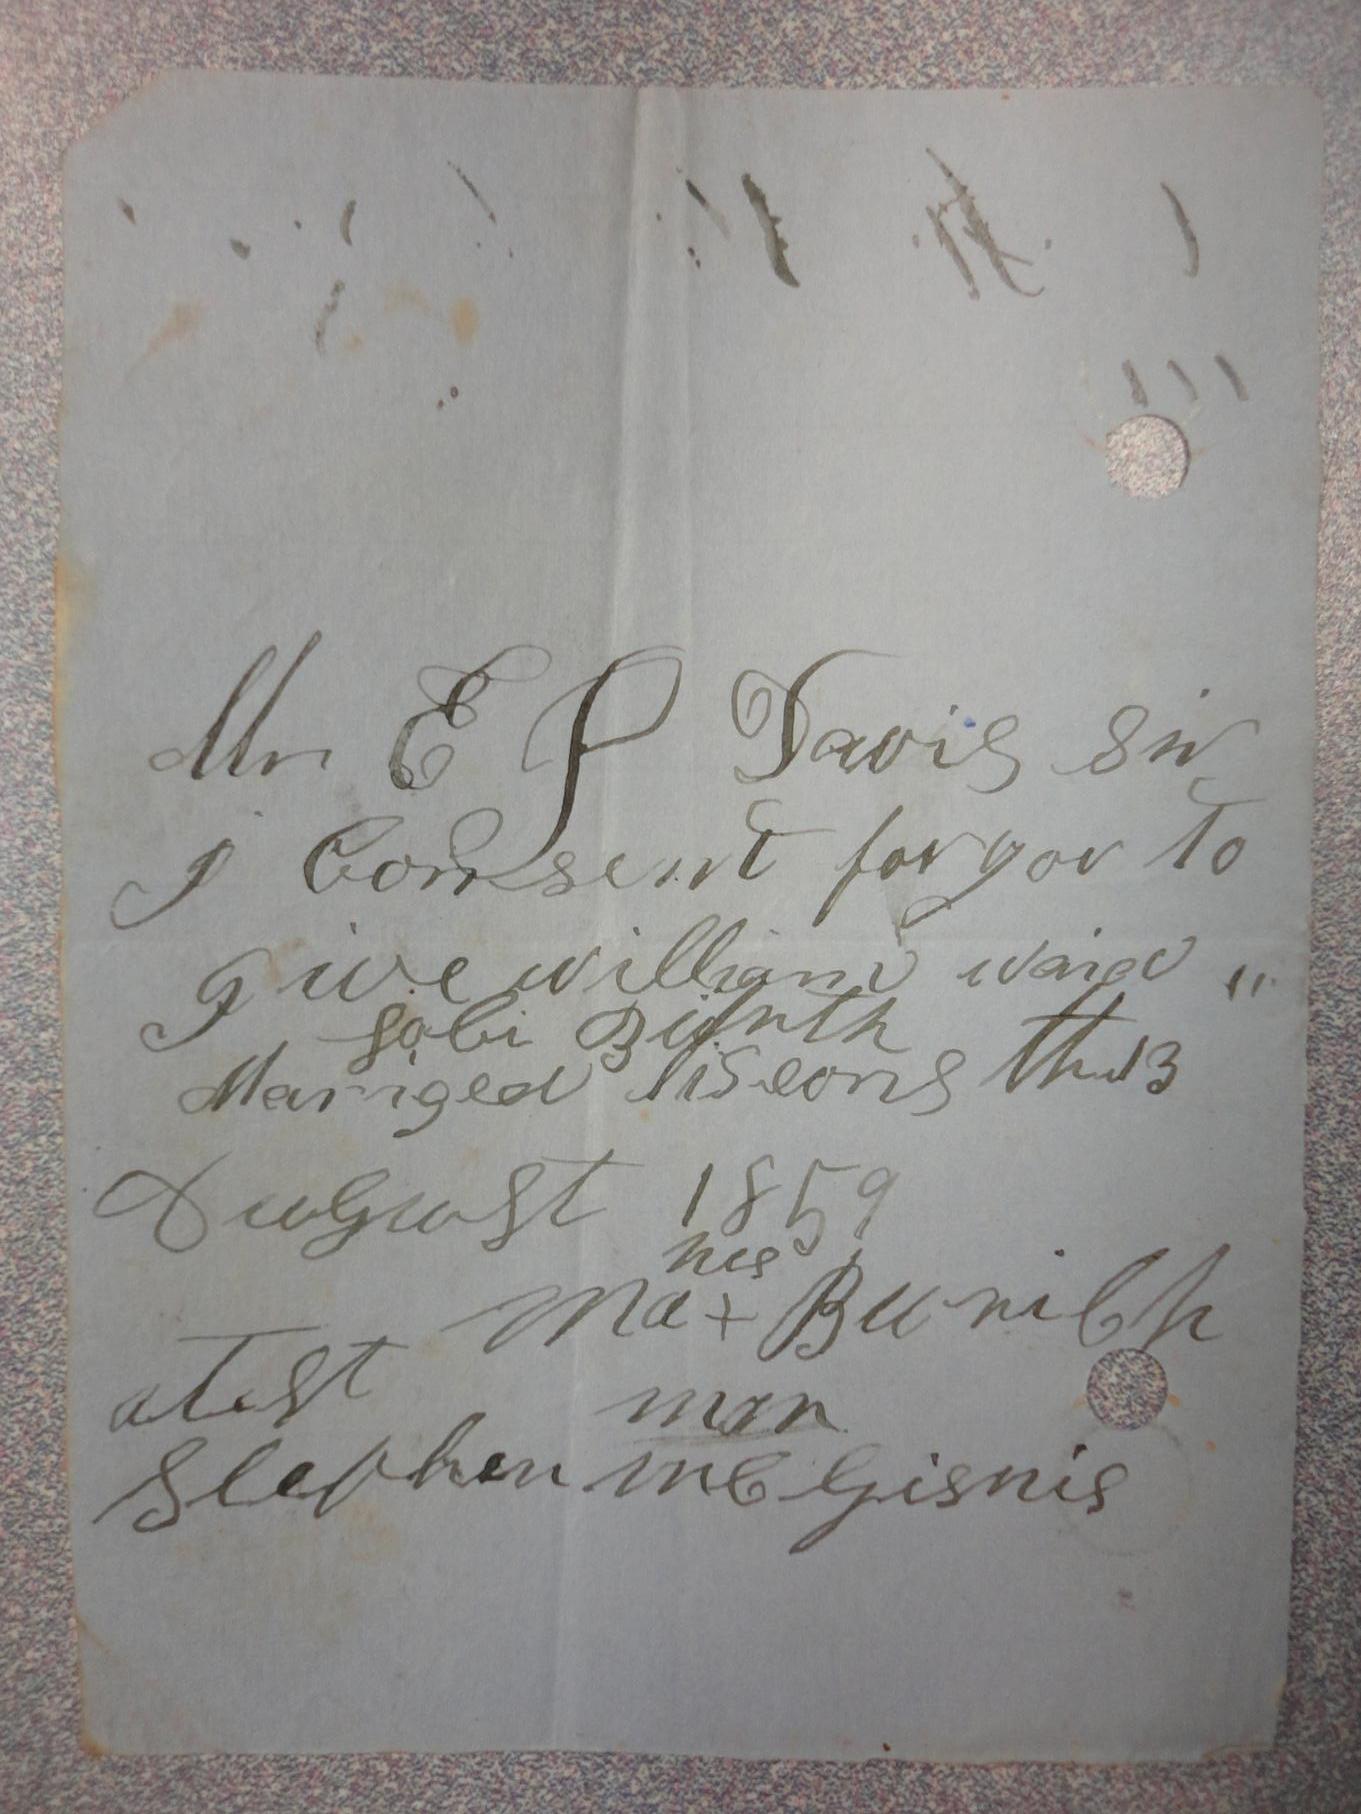 Mr E P Davis sir
I Consent for you to
give william waid "
Marriged liseons the 13
August 1859
his
Ma + Burnich
atest
man
Stephen mc Gisnis